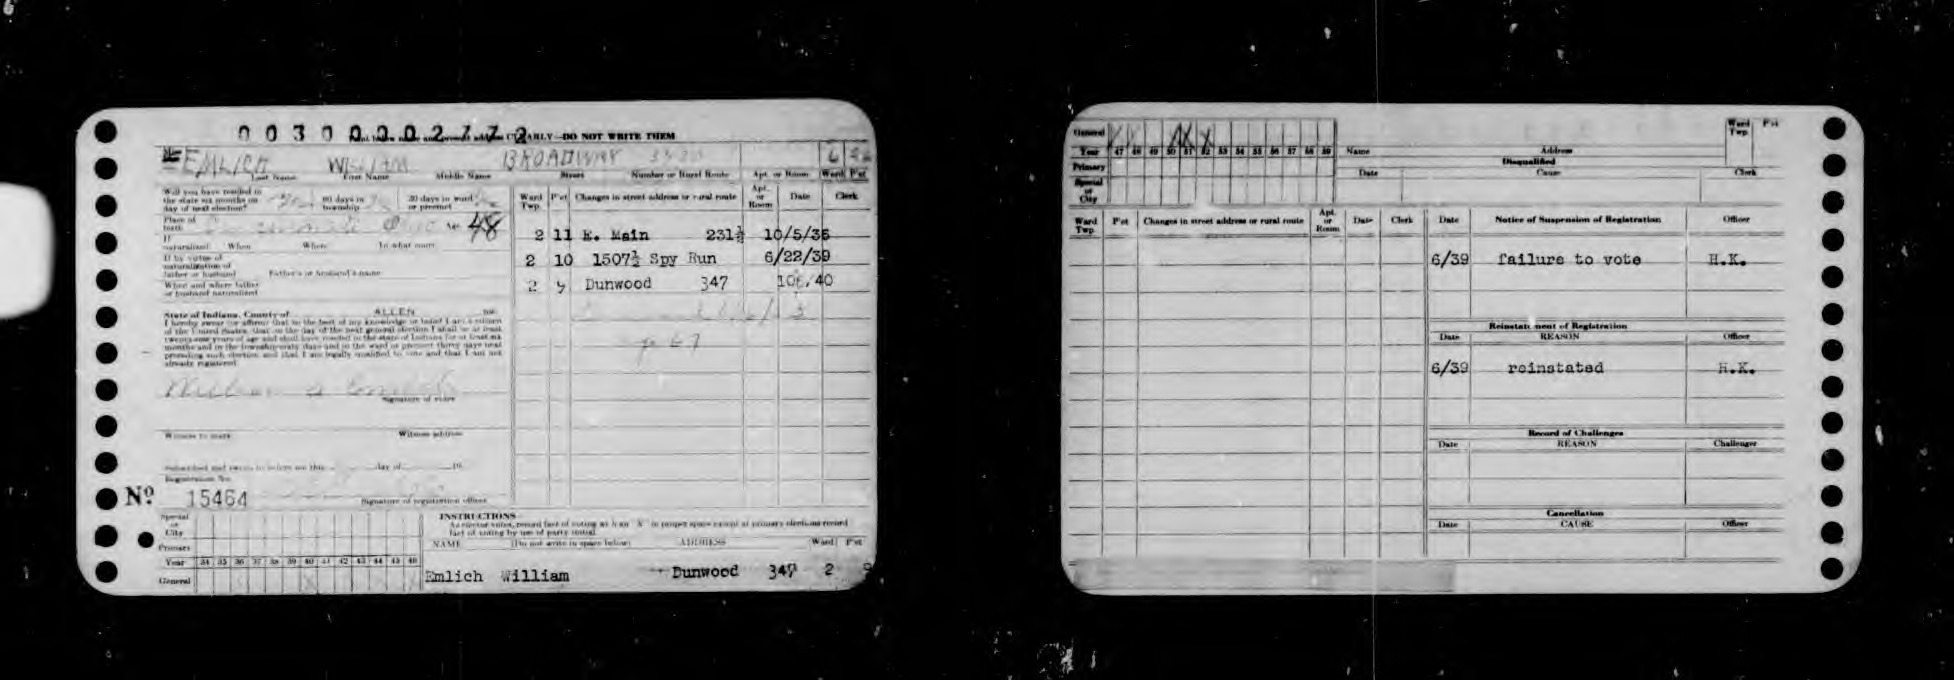 003000002772
PRINT NAME AND ADDRESS CLEARLY—DO NOT WRITE THEM
EMLICH WILLIAM BROADWAY 6
Last Name First Name Middle Name Street Number or Rural Route Apt. or Room Ward P'ct
Will you have resided in
the state six months on 60 days in 30 days in ward
day of next election? township or precinct
Place of
birth 48
If
naturalized When Where In what court
If by virtue of
naturalization of
father or husband Father's or husband's name
When and where father
or husband naturalized
State of Indiana, County of ALLEN ss:
I hereby swear (or affirm) that to the best of my knowledge or belief I am a citizen
of the United States, that on the day of the next general election I shall be at least
twenty-one years of age and shall have resided in the state of Indiana for at least six
months and in the township sixty days and in the ward or precinct thirty days next
preceding such election and that I am legally qualified to vote and that I am not
already registered.
William A Emlich
Signature of voter
Witness to mark Witness address
Subscribed and sworn to before me this day of 19
Registration No.
Nº 15464 Signature of registration officer
Ward Twp. P'ct Changes in street address or rural route Apt. or Room Date Clerk
2 11 E. Main 231½ 10/5/36
2 10 1507½ Spy Run 6/22/39
2 9 Dunwood 347 40
p 67
Special
or
City
Primary
Year 34 35 36 37 38 39 40 41 42 43 44 45 46
General X X
INSTRUCTIONS
As elector votes, record fact of voting by an "X" in proper space except at primary elections record
fact of voting by use of party initial.
NAME (Do not write in space below) ADDRESS Ward P'ct
Emlich William Dunwood 347 2 9
General X X X X
Year 47 48 49 50 51 52 53 54 55 56 57 58 59
Primary
Special
or
City
Name Address Ward Twp. P'ct
Disqualified
Date Cause Clerk
Ward Twp. P'ct Changes in street address or rural route Apt. or Room Date Clerk
Date Notice of Suspension of Registration Officer
6/39 failure to vote H.K.
Reinstatement of Registration
Date REASON Officer
6/39 reinstated H.K.
Record of Challenges
Date REASON Challenger
Cancellation
Date CAUSE Officer